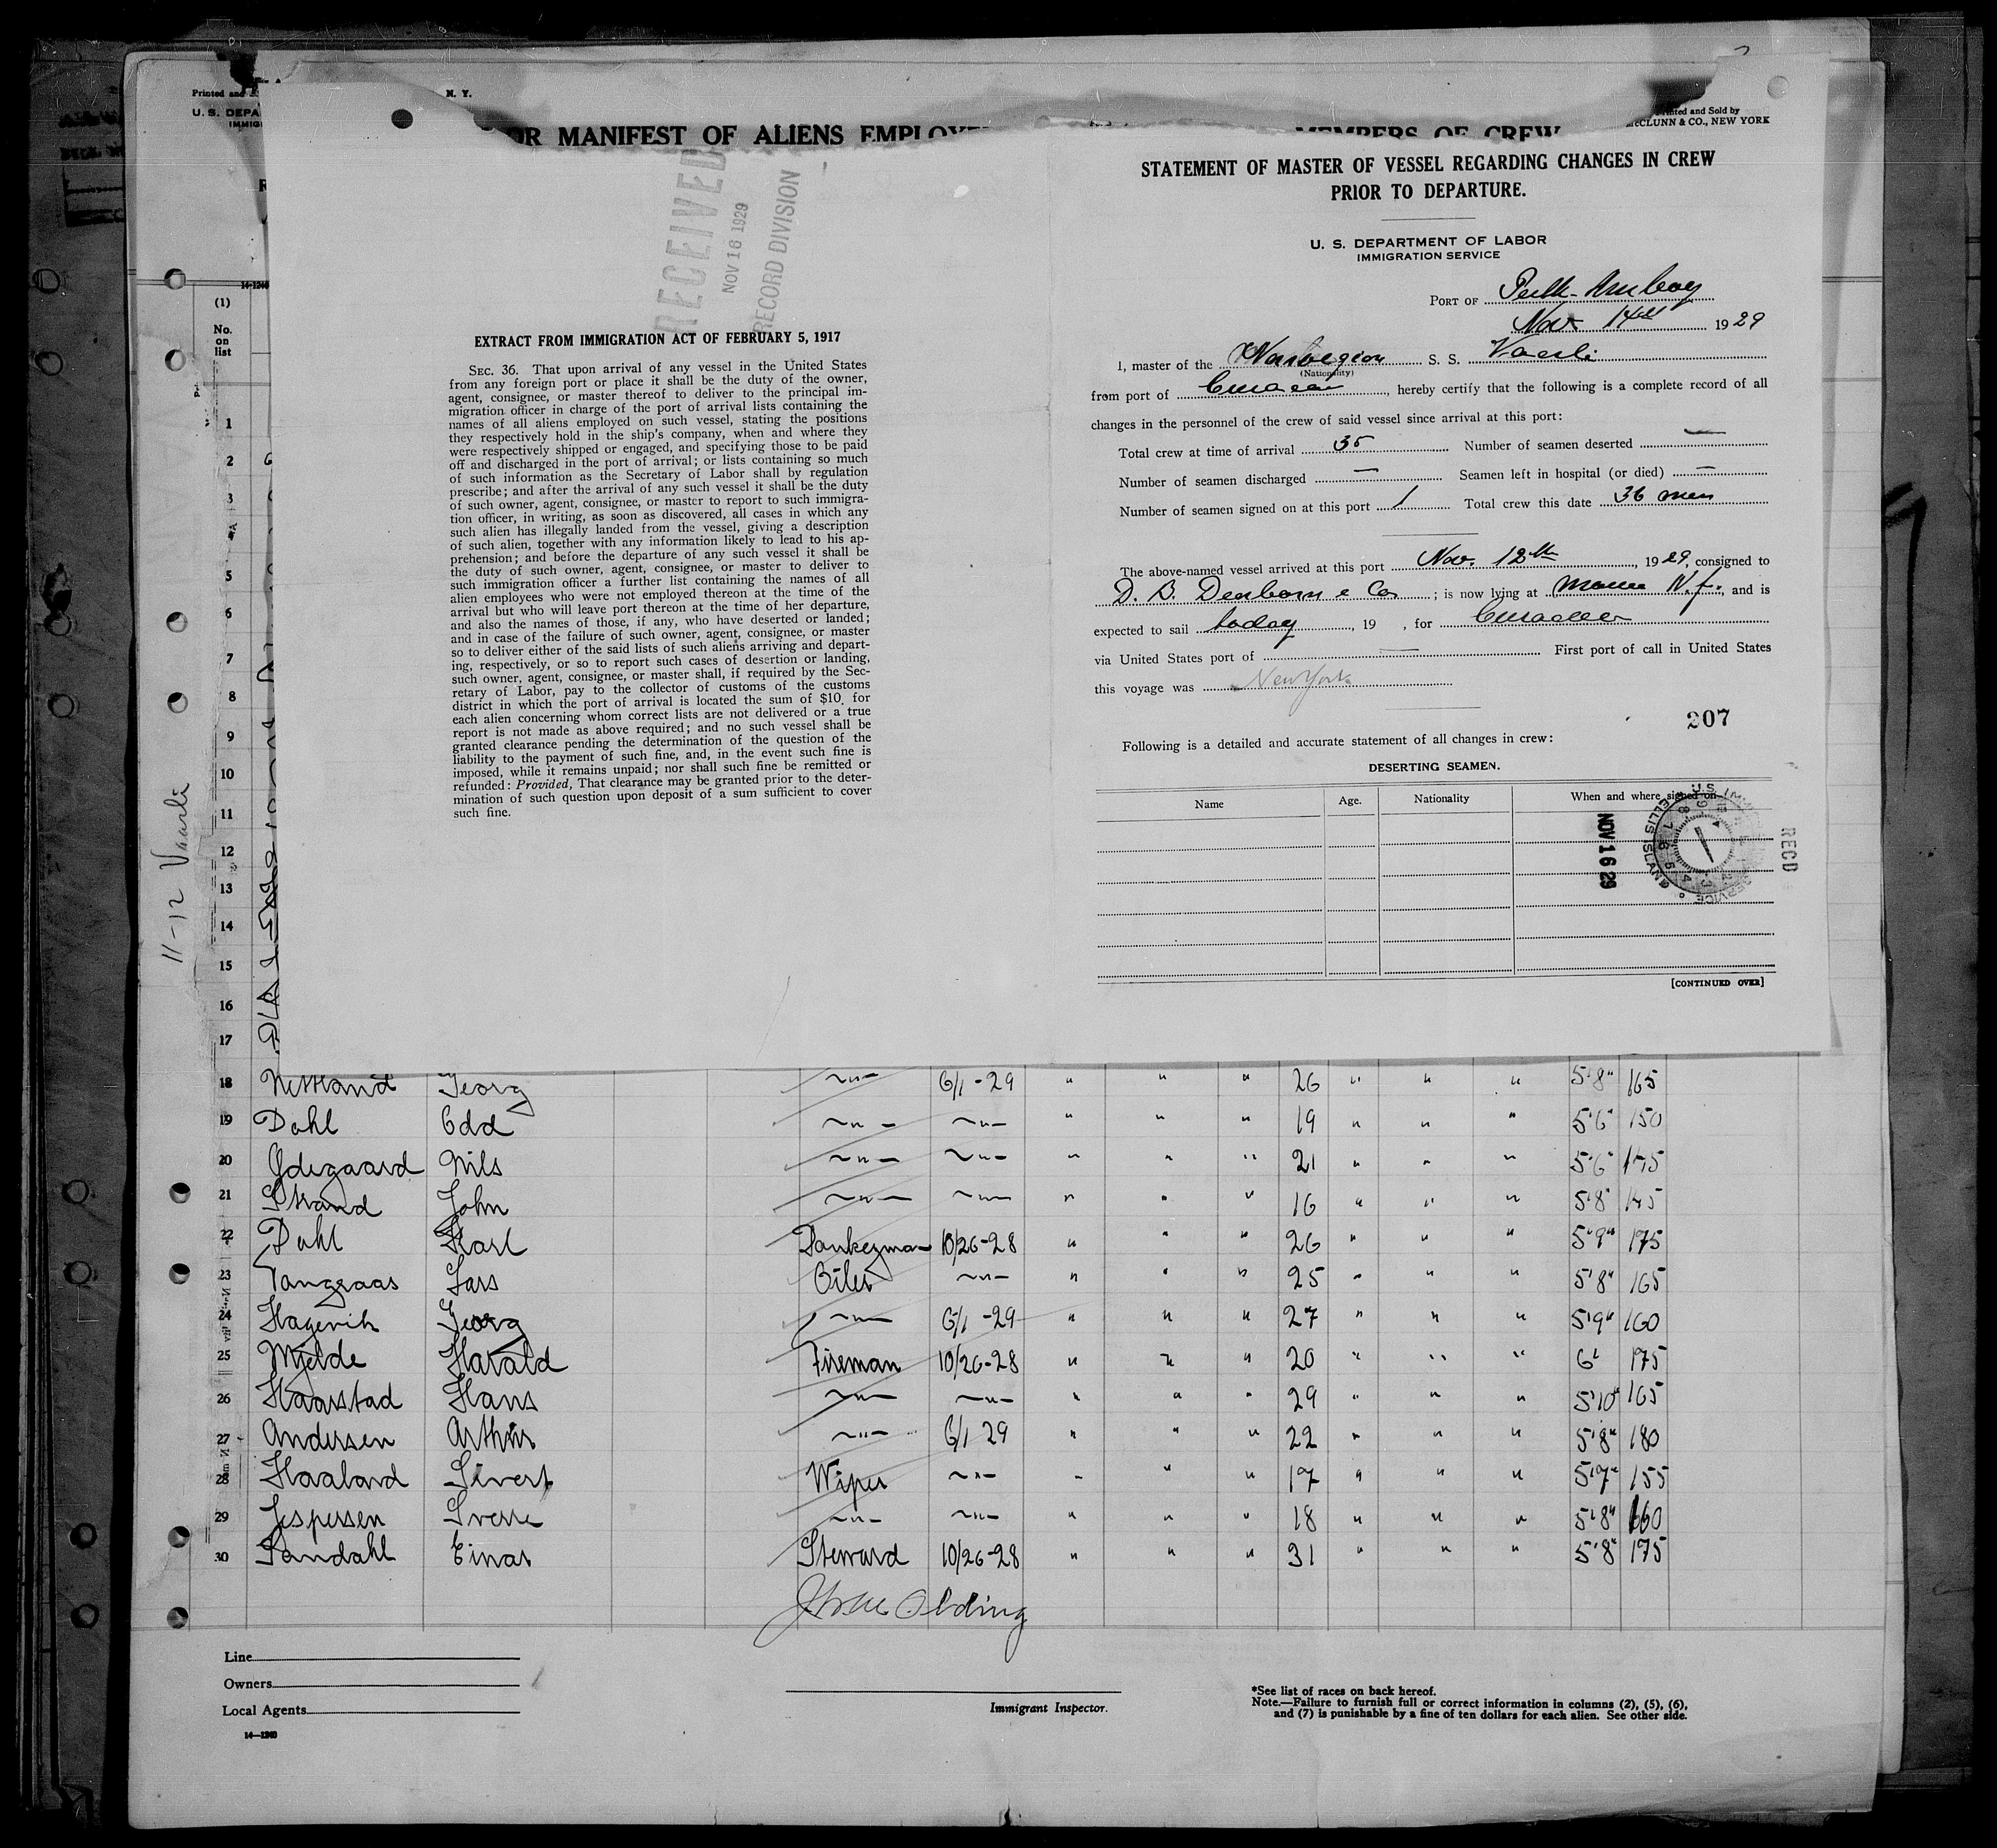 Printed and
N. Y.
U. S. DEPA
IMMIG
OR MANIFEST OF ALIENS EMPLOYE
MEMBERS OF CREW
Printed and Sold by
McCLUNN & CO., NEW YORK
RECEIVED
NOV 16 1929
RECORD DIVISION
EXTRACT FROM IMMIGRATION ACT OF FEBRUARY 5, 1917
SEC. 36. That upon arrival of any vessel in the United States
from any foreign port or place it shall be the duty of the owner,
agent, consignee, or master thereof to deliver to the principal im-
migration officer in charge of the port of arrival lists containing the
names of all aliens employed on such vessel, stating the positions
they respectively hold in the ship's company, when and where they
were respectively shipped or engaged, and specifying those to be paid
off and discharged in the port of arrival; or lists containing so much
of such information as the Secretary of Labor shall by regulation
prescribe; and after the arrival of any such vessel it shall be the duty
of such owner, agent, consignee, or master to report to such immigra-
tion officer, in writing, as soon as discovered, all cases in which any
such alien has illegally landed from the vessel, giving a description
of such alien, together with any information likely to lead to his ap-
prehension; and before the departure of any such vessel it shall be
the duty of such owner, agent, consignee, or master to deliver to
such immigration officer a further list containing the names of all
alien employees who were not employed thereon at the time of the
arrival but who will leave port thereon at the time of her departure,
and also the names of those, if any, who have deserted or landed;
and in case of the failure of such owner, agent, consignee, or master
so to deliver either of the said lists of such aliens arriving and depart-
ing, respectively, or so to report such cases of desertion or landing,
such owner, agent, consignee, or master shall, if required by the Sec-
retary of Labor, pay to the collector of customs of the customs
district in which the port of arrival is located the sum of $10 for
each alien concerning whom correct lists are not delivered or a true
report is not made as above required; and no such vessel shall be
granted clearance pending the determination of the question of the
liability to the payment of such fine, and, in the event such fine is
imposed, while it remains unpaid; nor shall such fine be remitted or
refunded: Provided, That clearance may be granted prior to the deter-
mination of such question upon deposit of a sum sufficient to cover
such fine.
STATEMENT OF MASTER OF VESSEL REGARDING CHANGES IN CREW
PRIOR TO DEPARTURE.
U. S. DEPARTMENT OF LABOR
IMMIGRATION SERVICE
PORT OF Perth-Amboy
Nov 14th 1929
I, master of the Norwegian S. S. Vaarli
(Nationality)
from port of Curacao, hereby certify that the following is a complete record of all
changes in the personnel of the crew of said vessel since arrival at this port:
Total crew at time of arrival 35 Number of seamen deserted —
Number of seamen discharged — Seamen left in hospital (or died) —
Number of seamen signed on at this port 1 Total crew this date 36 men
The above-named vessel arrived at this port Nov. 12th, 1929, consigned to
D. B. Dearborn & Co; is now lying at N.J., and is
expected to sail today, 19 , for
via United States port of — First port of call in United States
this voyage was New York
207
Following is a detailed and accurate statement of all changes in crew:
DESERTING SEAMEN.
Name Age. Nationality When and where signed on
NOV 16 29
RECD
ELLIS ISLAND
[CONTINUED OVER]
14-1240
(1)
No.
on
list
1
2
3
4
5
6
7
8
9
10
11
12
13
14
15
16
17
11-12 Vaarli
18 Nettland Georg 6/1-29 " " " 26 " " " 5'8" 165
19 Dahl Odd " " " 19 " " " 5'6" 150
20 Ødegaard Nils " " " 21 " " " 5'6"
21 Strand John " " " 16 " " " 5'8"
22 Dahl Karl Donkeyman 10/26-28 " " " 26 " " " 5'9" 175
23 Tanggaas Lars Oiler " " " 25 " " " 5'8" 165
24 Hagevik Georg 6/1-29 " " " 27 " " " 5'9" 160
25 Mjelde Harald Fireman 10/26-28 " " " 20 " " " 6' 175
26 Haarstad Hans " " " 29 " " " 5'10" 165
27 Andersen Arthur 6/1 29 " " " 22 " " " 5'8" 180
28 Haaland Sivert Wiper " " " 17 " " " 5'7" 155
29 Jespersen Sverre " " " 18 " " " 5'8" 160
30 Sandahl Einar Steward 10/26-28 " " " 31 " " " 5'8" 175
Line
Owners
Local Agents
14—1240
Immigrant Inspector.
*See list of races on back hereof.
Note.—Failure to furnish full or correct information in columns (2), (5), (6),
and (7) is punishable by a fine of ten dollars for each alien. See other side.